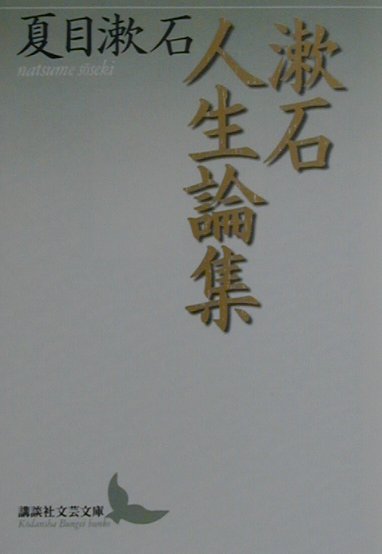 夏目漱石
natsume sōseki
漱石
人生論集
講談社文芸文庫
Kōdansha Bungei bunko